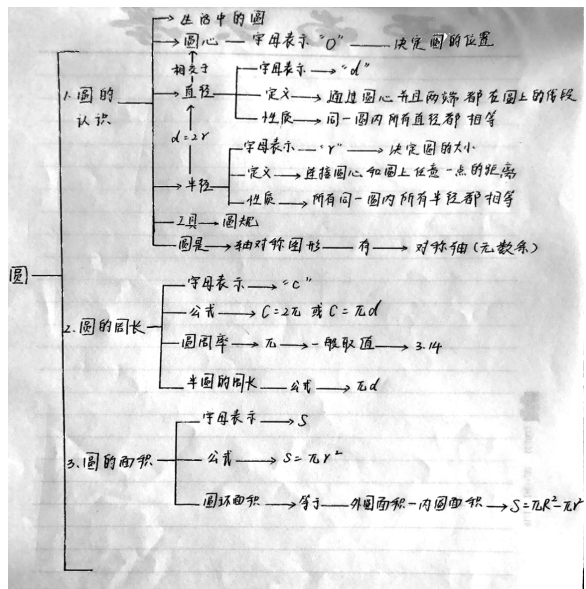 生活中的圆
圆心 字母表示 "O" 决定圆的位置
相交于
字母表示 "d"
1.圆的认识
直径 定义 通过圆心并且两端都在圆上的线段
性质 同一圆内所有直径都相等
d=2r
字母表示 "r" 决定圆的大小
半径 定义 连接圆心和圆上任意一点的距离
性质 所有同一圆内所有半径都相等
工具 圆规
圆是 轴对称图形 有 对称轴(无数条)
圆
字母表示 "C"
2.圆的周长
公式 C=2π 或 C=πd
圆周率 π 一般取值 3.14
半圆的周长 公式 πd
字母表示 S
3.圆的面积
公式 S=πr²
圆环面积 等于 外圆面积-内圆面积 S=πR²-πr²